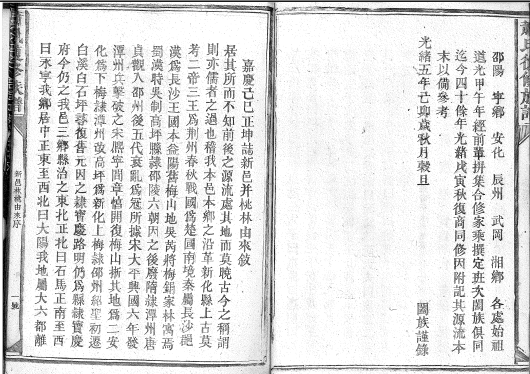 邵陽 寧鄉 安化 辰州 武岡 湘鄉 各處始祖
道光甲午年經前輩拼集合修家乘撰定班次闔族俱同
迄今四十餘年光緒戊寅秋復商同修因附記其源流本
末以備參考
光緒五年己卯歲秋月穀旦
闔族謹錄
嘉慶己巳正坤誌新邑并桃林由來敘
居其所而不知前後之源流處其地而莫曉古今之稱謂
則亦儒者之過也稽我本邑本鄉之沿革新化縣上古莫
考二帝三王為荊州春秋戰國為楚國南境秦屬長沙
漢為長沙王國本益陽舊梅山地吳芮將梅鋗家林寓焉
蜀漢時吳制高坪縣隸邵陵六朝因之後廢隋隸潭州唐
貞觀入邵州後五代衰亂為寇所據宋太平興國六年發
潭州兵擊破之宋熙寧間章惇開復梅山拆其地為二安
化為下梅隸潭州改高坪為新化上梅隸邵州紹聖初遷
白溪白石坪尋復舊元因之隸寶慶路明仍為縣隸寶慶
府今仍之我邑三鄉縣治之東北正北曰石馬正南至西
曰永寧我鄉居中正東至西北曰大陽我地屬大六都離
新邑桃林由來序